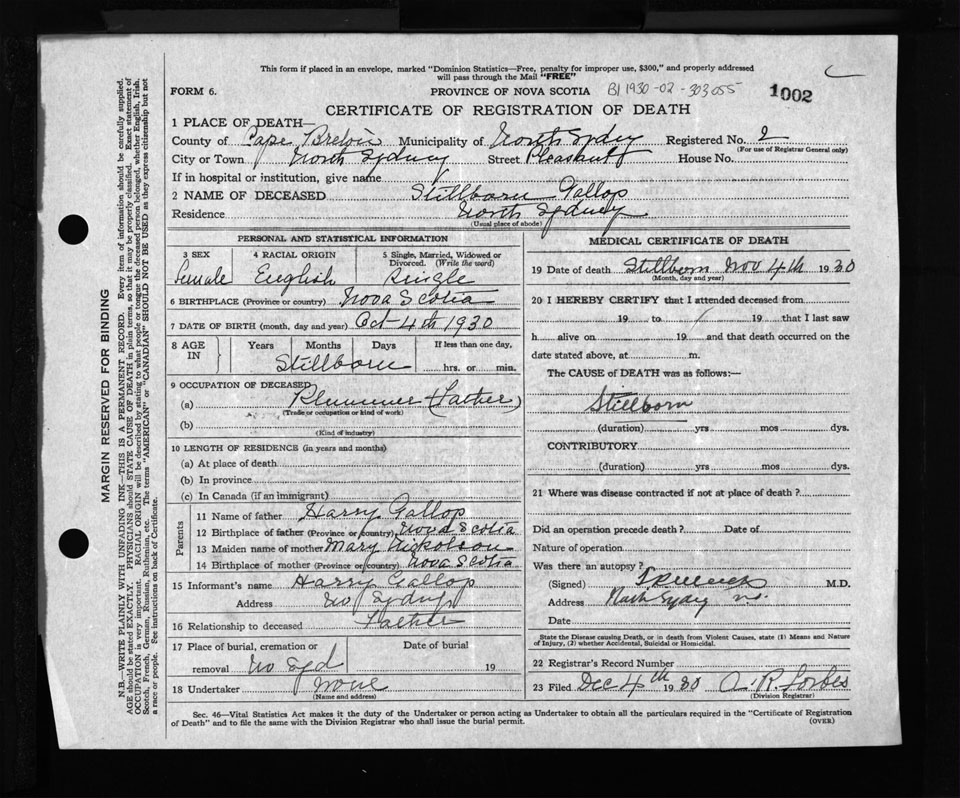 This form if placed in an envelope, marked "Dominion Statistics—Free, penalty for improper use, $300," and properly addressed
will pass through the Mail "FREE"
FORM 6. PROVINCE OF NOVA SCOTIA B1 1930-02-303055 1002
CERTIFICATE OF REGISTRATION OF DEATH
1 PLACE OF DEATH—
County of Cape Breton Municipality of North Sydney Registered No. 2
(For use of Registrar General only)
City or Town North Sydney Street Pleasant House No.
If in hospital or institution, give name
2 NAME OF DECEASED Stillborn Gallop
Residence North Sydney
(Usual place of abode)
PERSONAL AND STATISTICAL INFORMATION
3 SEX 4 RACIAL ORIGIN 5 Single, Married, Widowed or Divorced. (Write the word)
Female English Single
6 BIRTHPLACE (Province or country) Nova Scotia
7 DATE OF BIRTH (month, day and year) Oct 4th 1930
8 AGE IN Years Months Days If less than one day,
Stillborn hrs. or min.
9 OCCUPATION OF DECEASED
(a) Plummer (Father)
(Trade or occupation or kind of work)
(b)
(Kind of industry)
10 LENGTH OF RESIDENCE (in years and months)
(a) At place of death
(b) In province
(c) In Canada (if an immigrant)
Parents
11 Name of father Harry Gallop
12 Birthplace of father (Province or country) Nova Scotia
13 Maiden name of mother Mary Nickolson
14 Birthplace of mother (Province or country) Nova Scotia
15 Informant's name Harry Gallop
Address No Sydney
16 Relationship to deceased Father
17 Place of burial, cremation or Date of burial
removal No Syd 19
18 Undertaker None
(Name and address)
MEDICAL CERTIFICATE OF DEATH
19 Date of death Stillborn Nov 4th 1930
(Month, day and year)
20 I HEREBY CERTIFY that I attended deceased from
19 to 19 that I last saw
h alive on 19 and that death occurred on the
date stated above, at m.
The CAUSE of DEATH was as follows:—
Stillborn
(duration) yrs mos dys.
CONTRIBUTORY
(duration) yrs mos dys.
21 Where was disease contracted if not at place of death?
Did an operation precede death? Date of
Nature of operation
Was there an autopsy?
(Signed) M.D.
Address North Sydney N.S.
Date
State the Disease causing Death, or in death from Violent Causes, state (1) Means and Nature
of Injury, (2) whether Accidental, Suicidal or Homicidal.
22 Registrar's Record Number
23 Filed Dec 4th 1930 A. R. Forbes
(Division Registrar)
Sec. 46—Vital Statistics Act makes it the duty of the Undertaker or person acting as Undertaker to obtain all the particulars required in the "Certificate of Registration
of Death" and to file the same with the Division Registrar who shall issue the burial permit. (OVER)
MARGIN RESERVED FOR BINDING
N.B.—WRITE PLAINLY WITH UNFADING INK—THIS IS A PERMANENT RECORD. Every item of information should be carefully supplied.
AGE should be stated EXACTLY. PHYSICIANS should STATE CAUSE OF DEATH in plain terms, so that it may be properly classified. Exact statement of
OCCUPATION is very important. RACIAL ORIGIN will be described by stating to what people or tongue the deceased person belonged, whether English, Irish,
Scotch, French, German, Russian, Ruthenian, etc. The terms "AMERICAN" or "CANADIAN" SHOULD NOT BE USED as they express citizenship but not
a race or people. See instructions on back of Certificate.